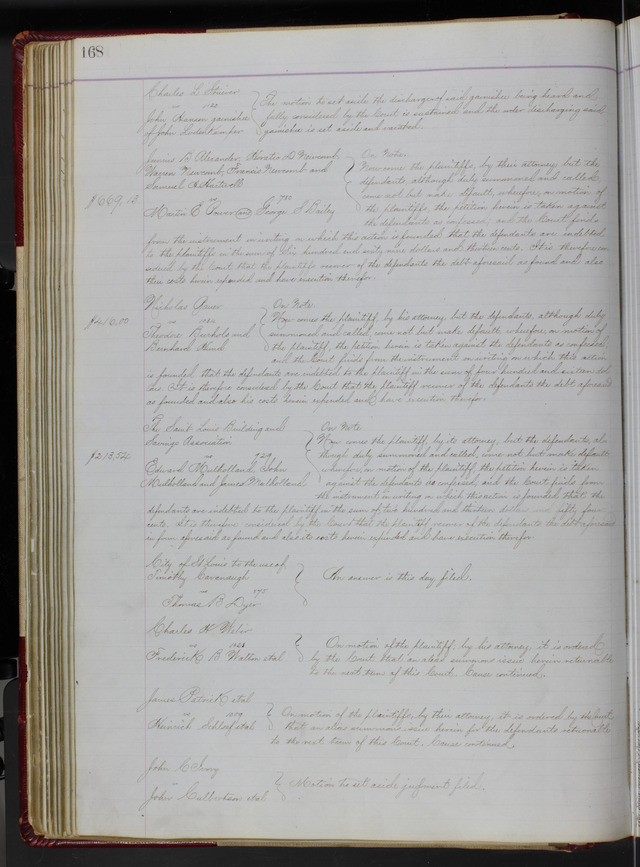 168
Charles L.
vs 1123
John Hanson garnishee
of John
The motion to set aside the discharge of said garnishee being heard and
fully considered by the Court is sustained and the order discharging said
garnishee is set aside and vacated.
James B Alexander, Horatio D Newcomb,
Warren Newcomb, Francis Newcomb and
Samuel A Hartwell
vs
Martin E Power and George S Bailey
$669.13
On Note.
Now come the plaintiffs, by their attorney but the
defendants, although duly summoned and called,
come not but make default; wherefore, on motion of
the plaintiffs, the petition herein is taken against
the defendants as confessed; and the Court finds
from the instrument in writing on which this action is founded, that the defendants are indebted
to the plaintiffs in the sum of Six hundred and sixty nine dollars and thirteen cents. It is therefore con
sidered by the Court that the plaintiffs recover of the defendants the debt aforesaid as found and also
their costs herein expended and have execution therefor.
Nicholas
vs
Theodore and
Bernhard
$416.00
On Note.
Now comes the plaintiff, by his attorney, but the defendants, although duly
summoned and called, come not, but make default; wherefore, on motion of
the plaintiff, the petition herein is taken against the defendants as confessed;
and the Court finds from the instrument in writing on which this action
is founded that the defendants are indebted to the plaintiff in the sum of four hundred and sixteen dol
lars. It is therefore considered by the Court that the plaintiff recover of the defendants the debt aforesaid
as found and also his costs herein expended and have execution therefor.
The Saint Louis Building and
Savings Association
vs 729
Edward Mulholland, John
Mulholland and James Mulholland
$213.54
On Note
Now comes the plaintiff, by its attorney, but the defendants, al
though duly summoned and called, come not but make default;
wherefore, on motion of the plaintiff, the petition herein is taken
against the defendants as confessed; and the Court finds from
the instrument in writing on which this action is founded that the
defendants are indebted to the plaintiff in the sum of two hundred and thirteen dollars and fifty four
cents. It is therefore considered by the Court that the plaintiff recover of the defendants the debt aforesaid
in form aforesaid as found and also its costs herein expended and have execution therefor
City of St Louis to the use of
Timothy Cavanaugh
vs 575
Thomas B Dyer
An answer is this day filed.
Charles H Weber
vs
Frederick B Walton etal
On motion of the plaintiff, by his attorney, it is ordered
by the Court that an alias summons issue herein returnable
to the next term of this Court. Cause continued.
James Patrick etal
vs
Heinrich Schleef etal
On motion of the plaintiffs, by their attorney, it is ordered by the Court
that an alias summons issue herein for the defendants returnable
to the next term of this Court. Cause continued.
John C Ivory
vs
John Culbertson etal
Motion to set aside judgment filed.